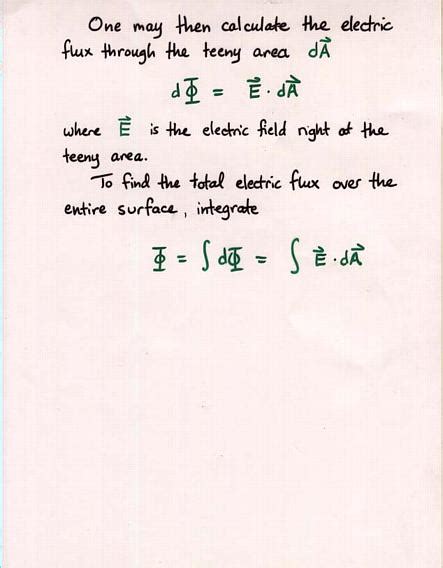 One may then calculate the electric
flux through the teeny area dA⃗
dΦ = E⃗ · dA⃗
where E⃗ is the electric field right at the
teeny area.
To find the total electric flux over the
entire surface, integrate
Φ = ∫ dΦ = ∫ E⃗ · dA⃗